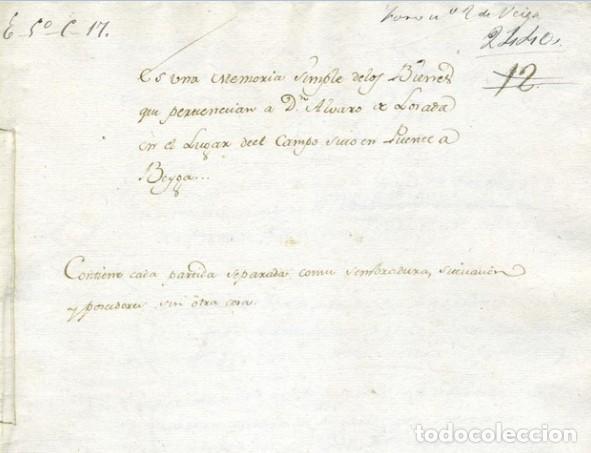 E 5º C 17.
Foro nº 2 de Veiga
2440.
12
Es una Memoria simple delos Bienes
que pertenecian a Dn Alvaro de Losada
en el Lugar deel Campo sito en Puente a
Beyga...
Contiene cada partida separada como sembradura, situacion
y poseedores sin otra cosa.
todocoleccion
todocoleccion.net